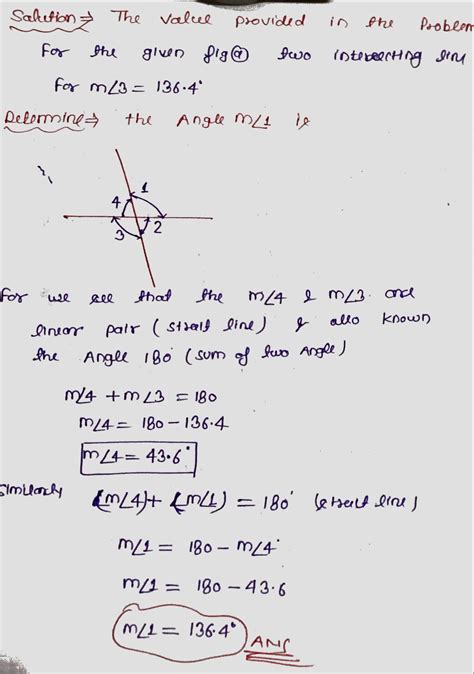 Solution ⇒ The value provided in the Problem
For the given fig two intersecting line
for m∠3 = 136.4°
Determine ⇒ the Angle m∠1 is
1
4
2
3
For we see that the m∠4 & m∠3 and
linear pair (strait line) & also known
the Angle 180° (sum of two Angle)
m∠4 + m∠3 = 180
m∠4 = 180 - 136.4
m∠4 = 43.6°
Similarly (m∠4) + (m∠1) = 180° (strait line)
m∠1 = 180 - m∠4°
m∠1 = 180 - 43.6
m∠1 = 136.4° ANS